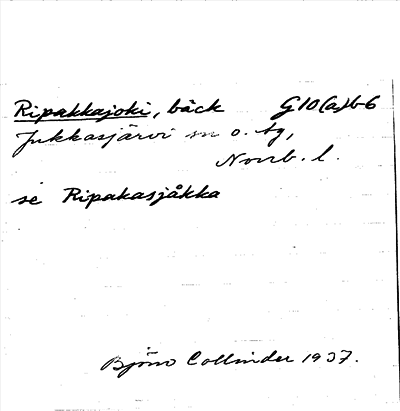 Ripakkajoki, bäck G10(a)b-6
Jukkasjärvi sn o. tg,
Norrb. l.
se Ripakasjåkka
Björn Collinder 1937.